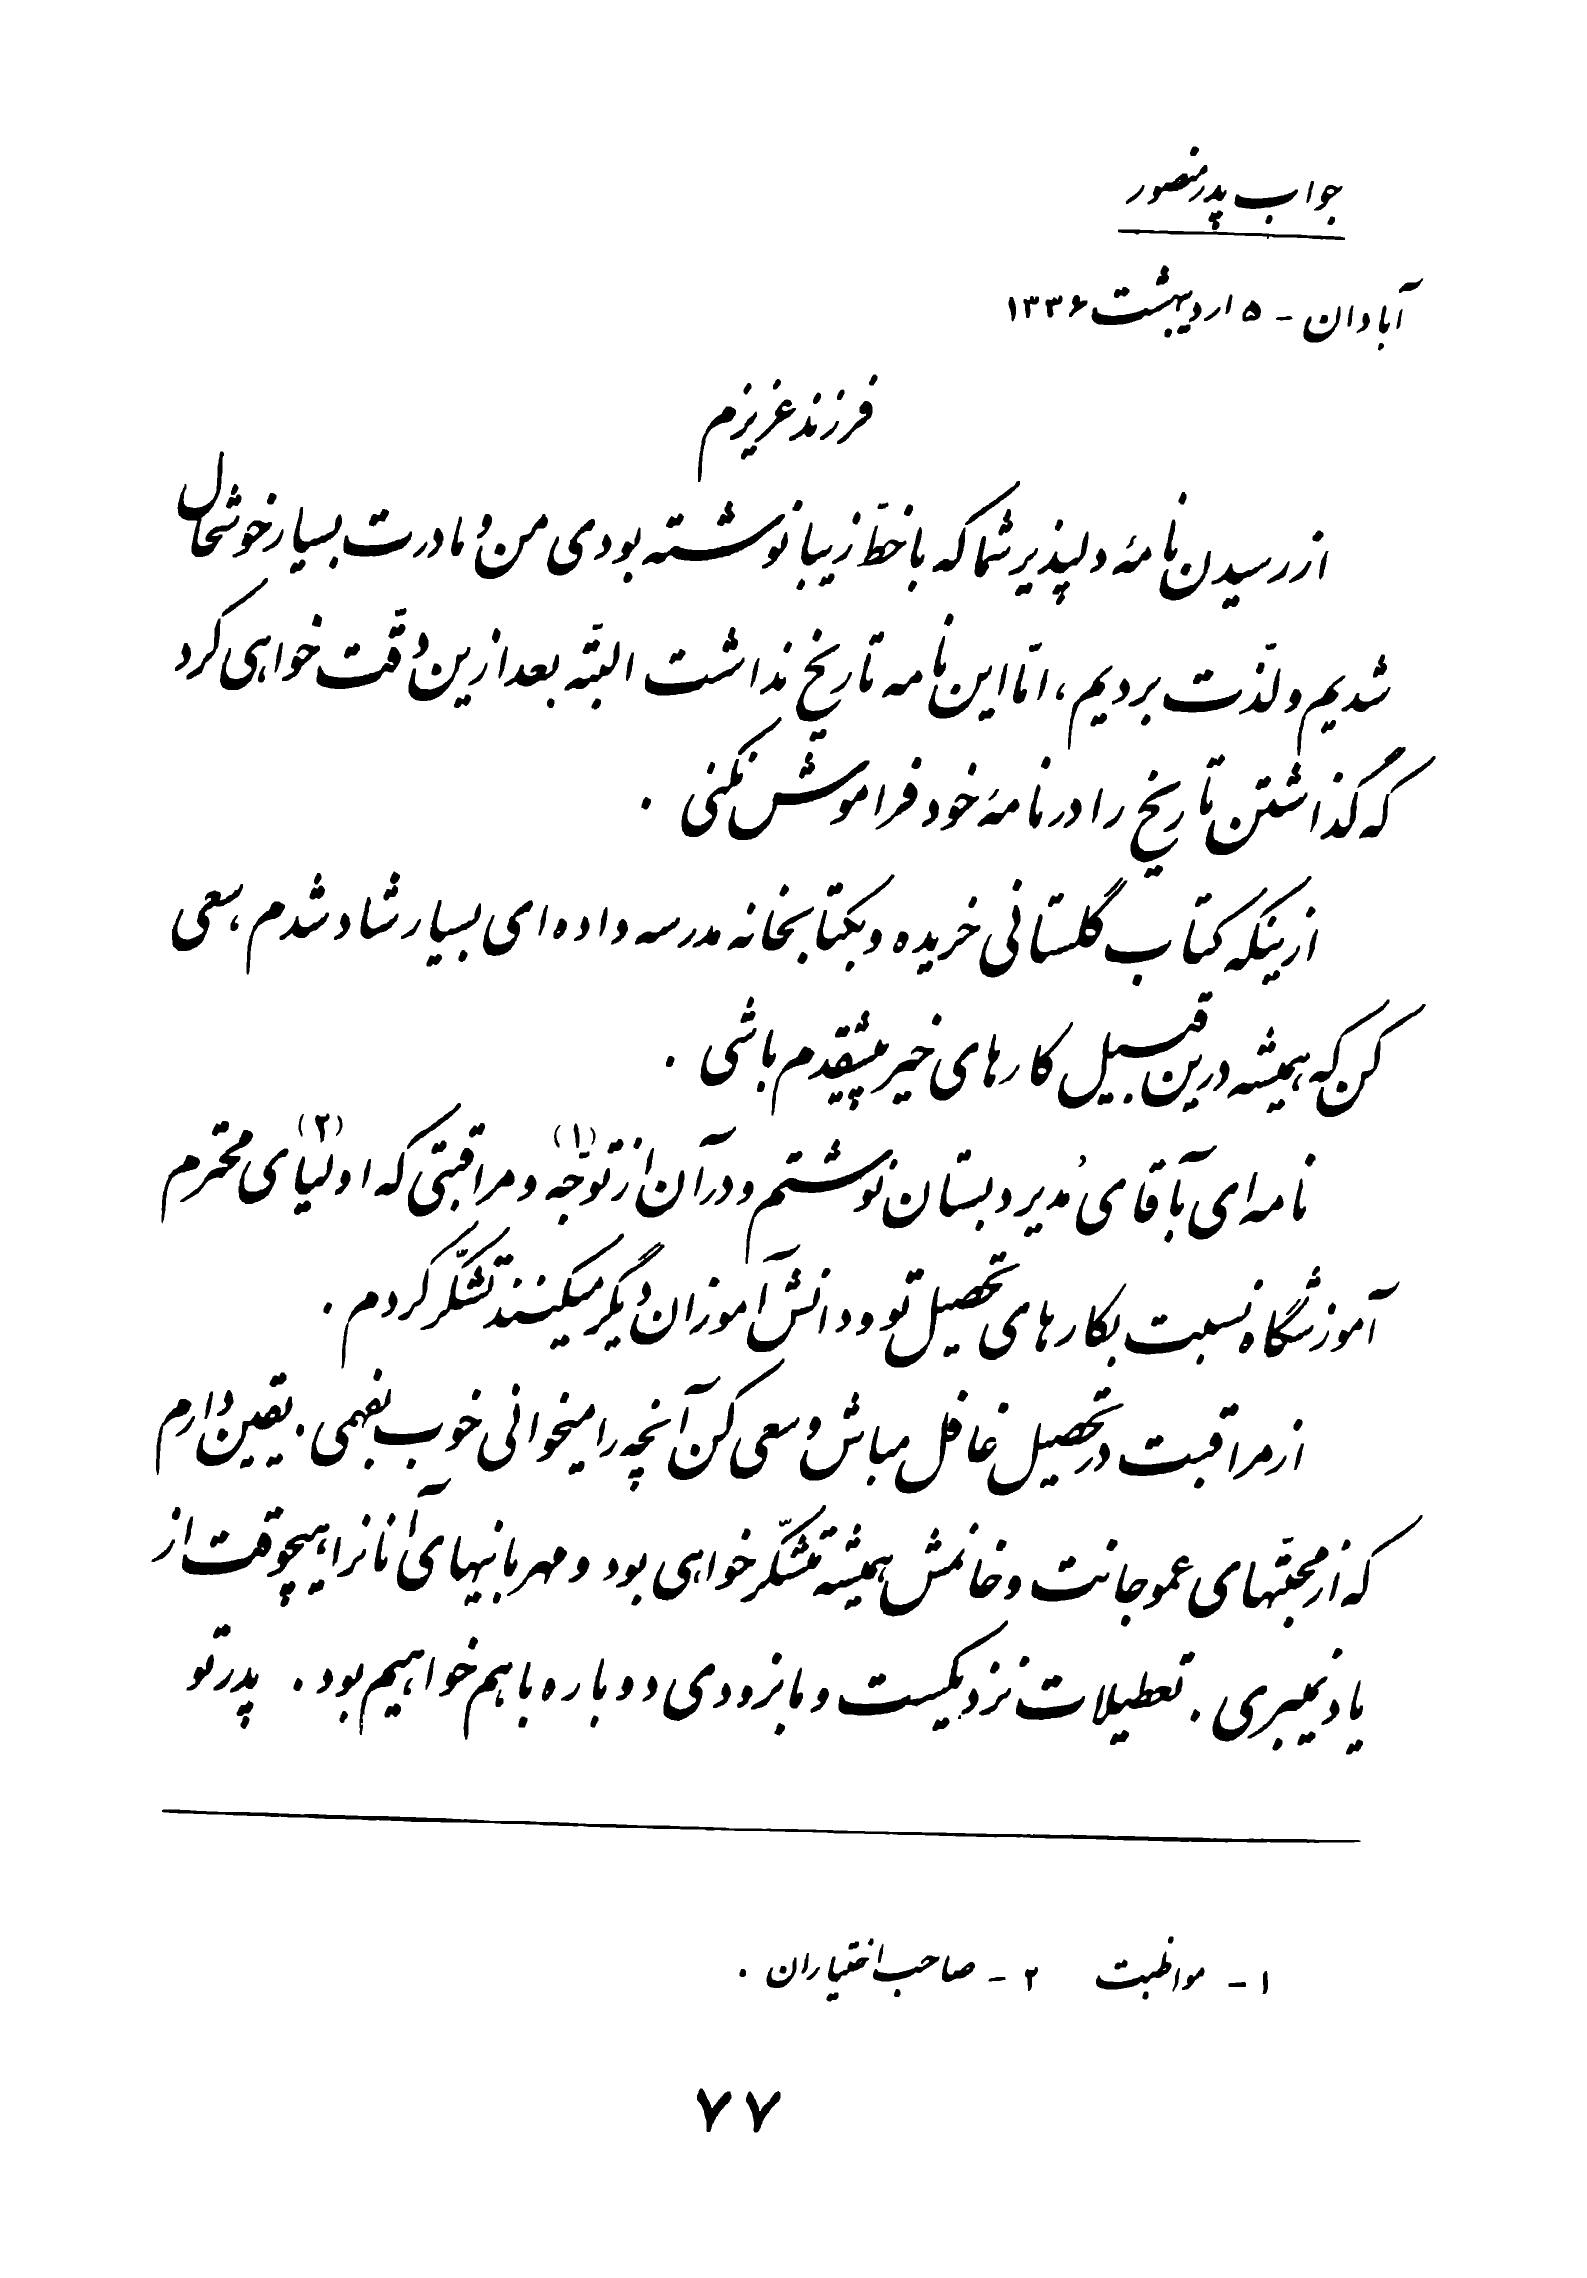 جواب پدر منصور
آبادان - ۵ اردیبهشت ۱۳۳۶
فرزند عزیزم
از رسیدن نامهٔ دلپذیر شما که با خطّ زیبا نوشته بودی من و مادرت بسیار خوشحال
شدیم و لذّت بردیم، امّا این نامه تاریخ نداشت البتّه بعد ازین دقّت خواهی کرد
که گذاشتن تاریخ را در نامهٔ خود فراموش نکنی .
ازینکه کتاب گلستانی خریده و بکتابخانه مدرسه داده‌ای بسیار شاد شدم، سعی
کن که همیشه درین قبیل کارهای خیر پیشقدم باشی .
نامه‌ای بآقای مُدیر دبستان نوشتم و در آن از توجّه (۱) و مراقبتی که اولیای (۲) محترم
آموزشگاه نسبت بکارهای تحصیل تو و دانش‌آموزان دیگر میکنند تشکّر کردم .
از مراقبت در تحصیل غافل مباش و سعی کن آنچه را میخوانی خوب بفهمی . یقین دارم
که از محبّتهای عموجانت و خانمش همیشه متشکّر خواهی بود و مهربانیهای آنانرا هیچوقت از
یاد نمیبری . تعطیلات نزدیکست و ما بزودی دوباره با هم خواهیم بود . پدر تو
۱ - مواظبت ۲ - صاحب اختیاران .
۷۷